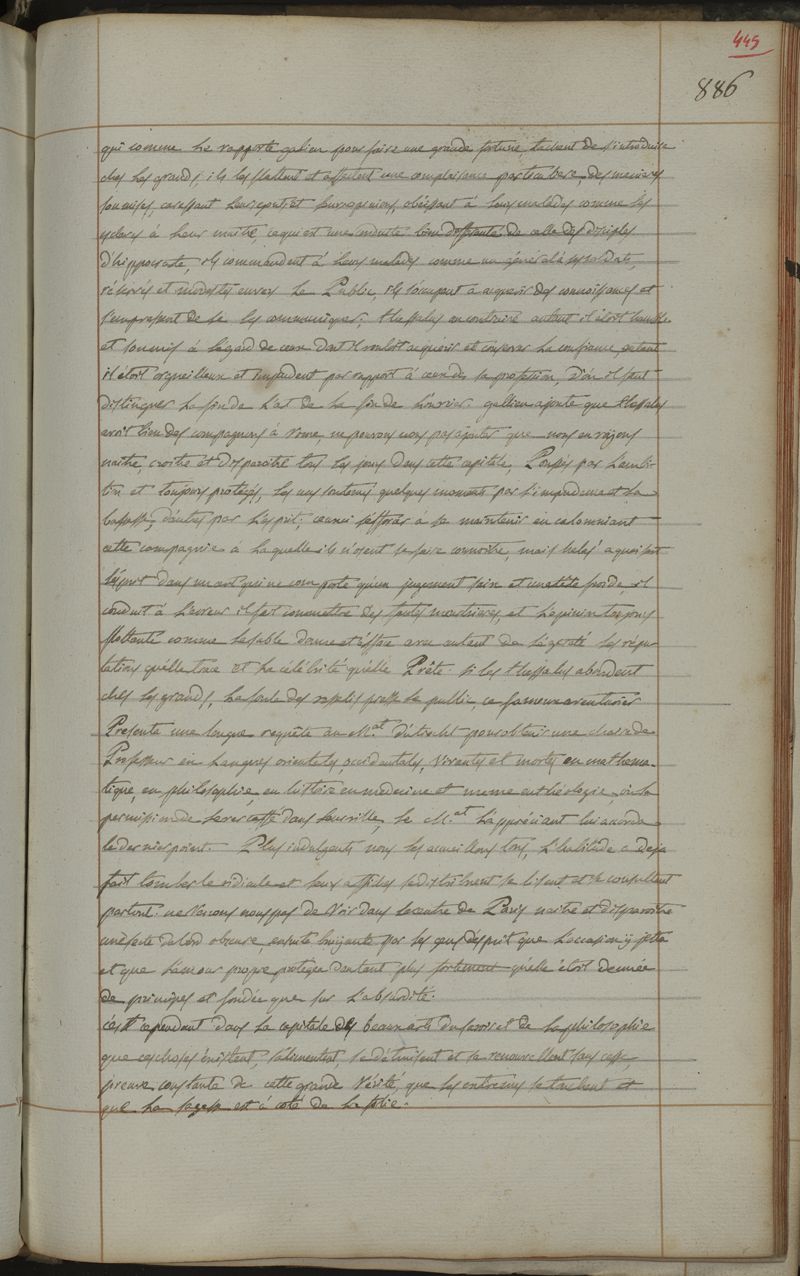 445
886
qui comme le rapporte galien pour faire une grande fortune, tachent de s'introduire
chez les grands; ils les flattent et affectent une complaisance particuliere, des manieres
soumises, caressant leurs gouts et leurs opinions, obéissant à leurs malades comme les
esclaves à leur maître, ce qui est une conduite bien différente de celle des disciples
d'hippocrate, ils commandent à leurs malades comme un général à ses soldats,
réservés et modestes envers le Public, ils s'occupent à acquerir des connoissances et
s'empressent de se les communiquer; thessalus au contraire autant il étoit humble
et soumis à l'égard de ceux dont il vouloit acquérir et conserver la confiance, autant
il étoit orgueilleux et impudent par rapport à ceux de sa profession, D'ou il faut
distinguer la fin de l'art de la fin de l'ouvrier. gallien ajoute que thessalus
avoit bien des compagnons à Rome, ne pouvons nous pas ajouter que nous en voyons
naitre, croitre et disparoitre tous les jours dans cette capitale, Poussés par l'ambi-
tion et toujours protégés, les uns soutenus quelques moments par l'impudence et la
bassesse, d'autres par l'esprit; ceux ci s'efforcent à se maintenir en calomniant
cette compagnie à laquelle ils n'osent se faire connoitre, mais helas! a quoi sert
l'esprit dans un art qui ne comporte qu'un jugement sain et une tête froide, il
conduit à l'erreur il fait commettre des fautes meurtrieres, et l'opinion toujours
flottante comme le sable donne et efface avec autant de légereté les répu-
tations qu'elle trace et la célébrité qu'elle Prête. si les thessalus abondent
chez les grands, la foule des presse le public, ce fameux aventurier
Presenta une longue requête au M.at d'utrecht pour obtenir une chaire de
Professeur en langues orientales, occidentales, vivantes et mortes en mathema-
tique, en philosophie, en histoire en medecine et meme en théologie, ou la
permission de dans leur ville, le M.at l'appréciant lui accorda
le dernier point. Plus indulgents nous les accueillons tous, l'habitude a deja
fait tomber le ridicule et leurs affiches se distribuent se lisent et se consultent
partout. ne venons nous pas de voir dans le centre de Paris naitre et disparoitre
une secte d'abord obscure, ensuite bruyante par les gens d'esprit que l'occasion y jetta
et que l'amour propre protégea d'autant plus fortement qu'elle étoit denuée
de principes et fondée que sur l'absurdité.
c'est cependant dans la capitale des beaux arts du savoir et de la philosophie
que ces choses existent, s'alimentent, se détruisent et se renouvellent sans cesse,
preuve constante de cette grande vérité, que les extremes se touchent et
que la sagesse est à coté de la folie.